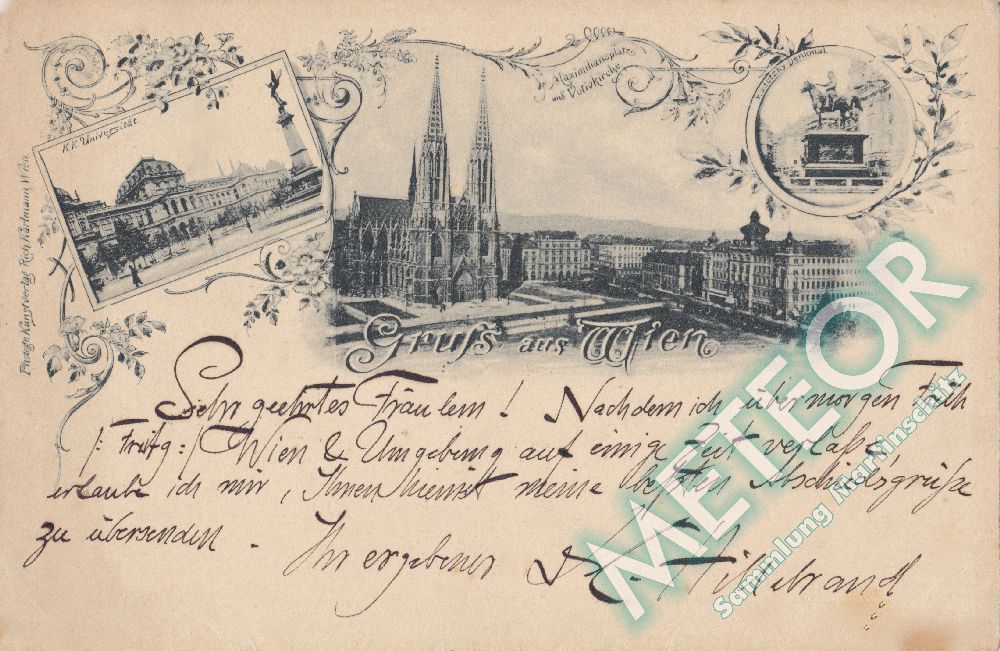 K.K. Universität
Maximiliansplatz
und Votivkirche
Radetzky Denkmal
Gruß aus Wien
Sehr geehrtes Fräulein! Nachdem ich übermorgen Früh
/: Freitg :/ Wien & Umgebung auf einige Zeit verlaße,
erlaube ich mir, Ihnen hiemit meine besten Abschiedsgrüße
zu übersenden.
Ihr ergebener
Hillebrand
METEOR
Sammlung Martinschitz